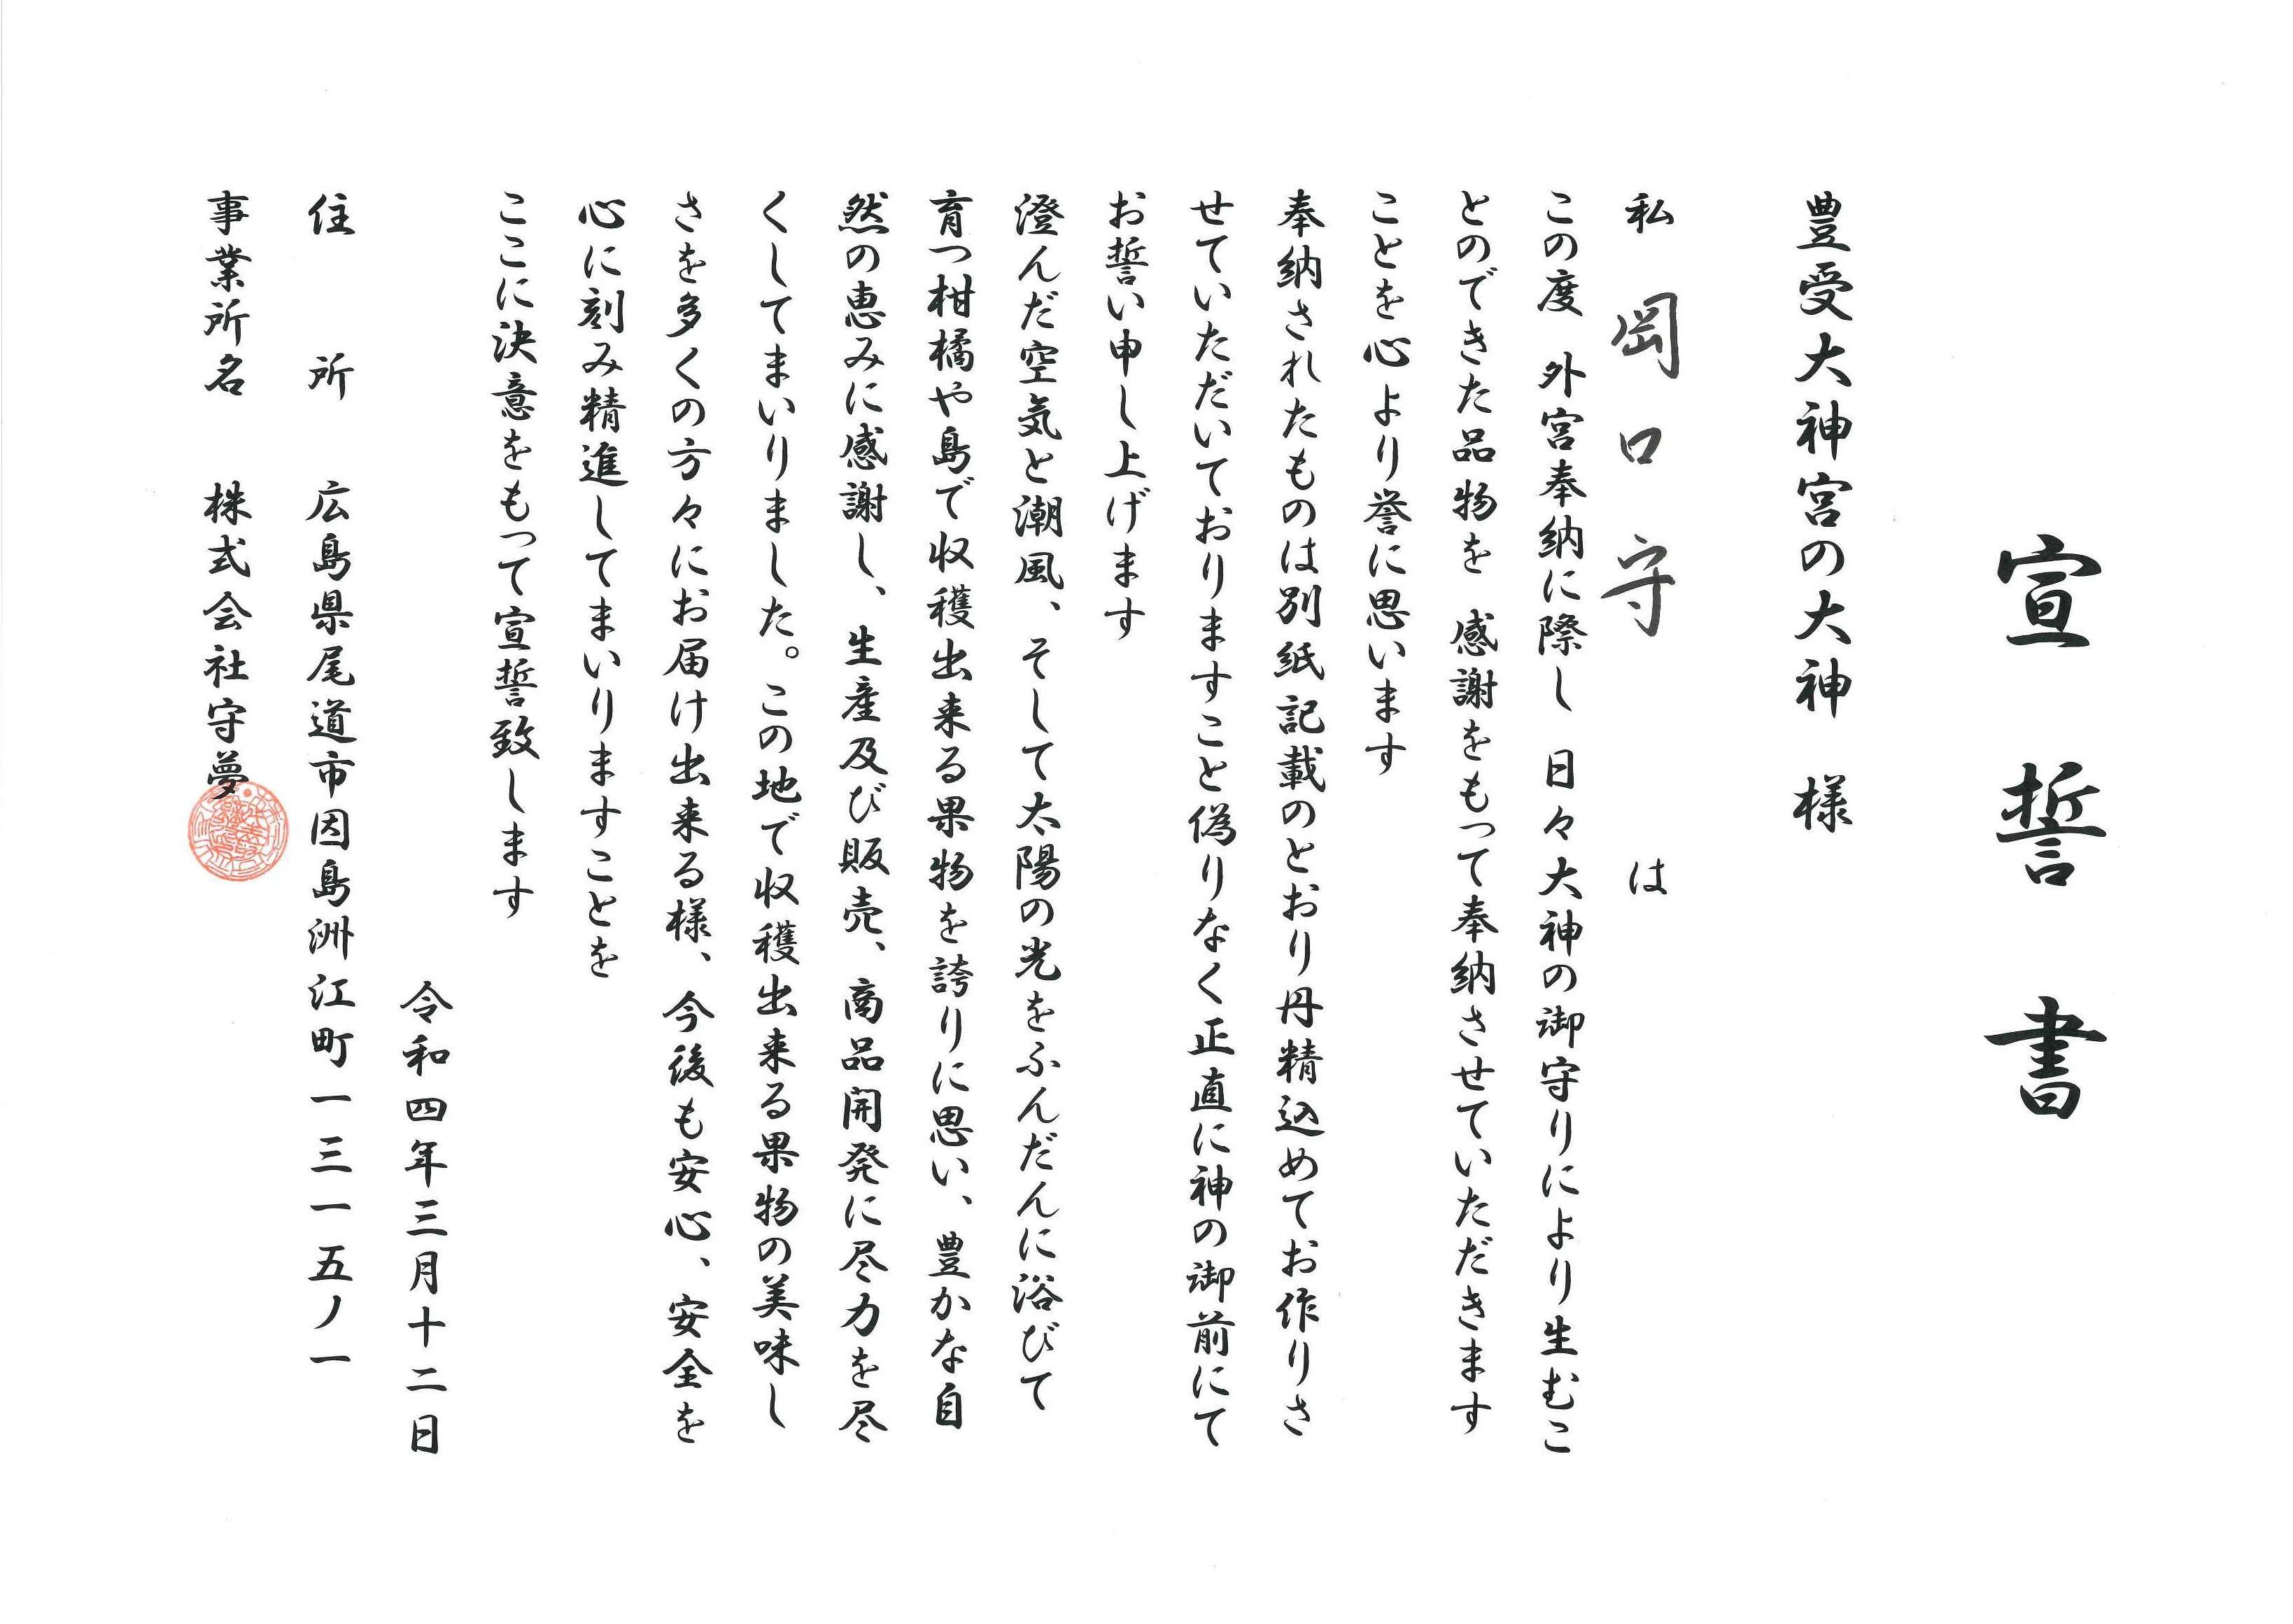 宣誓書
豊受大神宮の大神　様
私　岡口守　は
この度　外宮奉納に際し　日々大神の御守りにより生むこ
とのできた品物を　感謝をもって奉納させていただきます
ことを心より誉に思います
奉納されたものは別紙記載のとおり丹精込めてお作りさ
せていただいておりますこと偽りなく正直に神の御前にて
お誓い申し上げます
澄んだ空気と潮風、そして太陽の光をふんだんに浴びて
育つ柑橘や島で収穫出来る果物を誇りに思い、豊かな自
然の恵みに感謝し、生産及び販売、商品開発に尽力を尽
くしてまいりました。この地で収穫出来る果物の美味し
さを多くの方々にお届け出来る様、今後も安心、安全を
心に刻み精進してまいりますことを
ここに決意をもって宣誓致します
令和四年三月十二日
住　所　広島県尾道市因島洲江町一三一五ノ一
事業所名　株式会社守夢